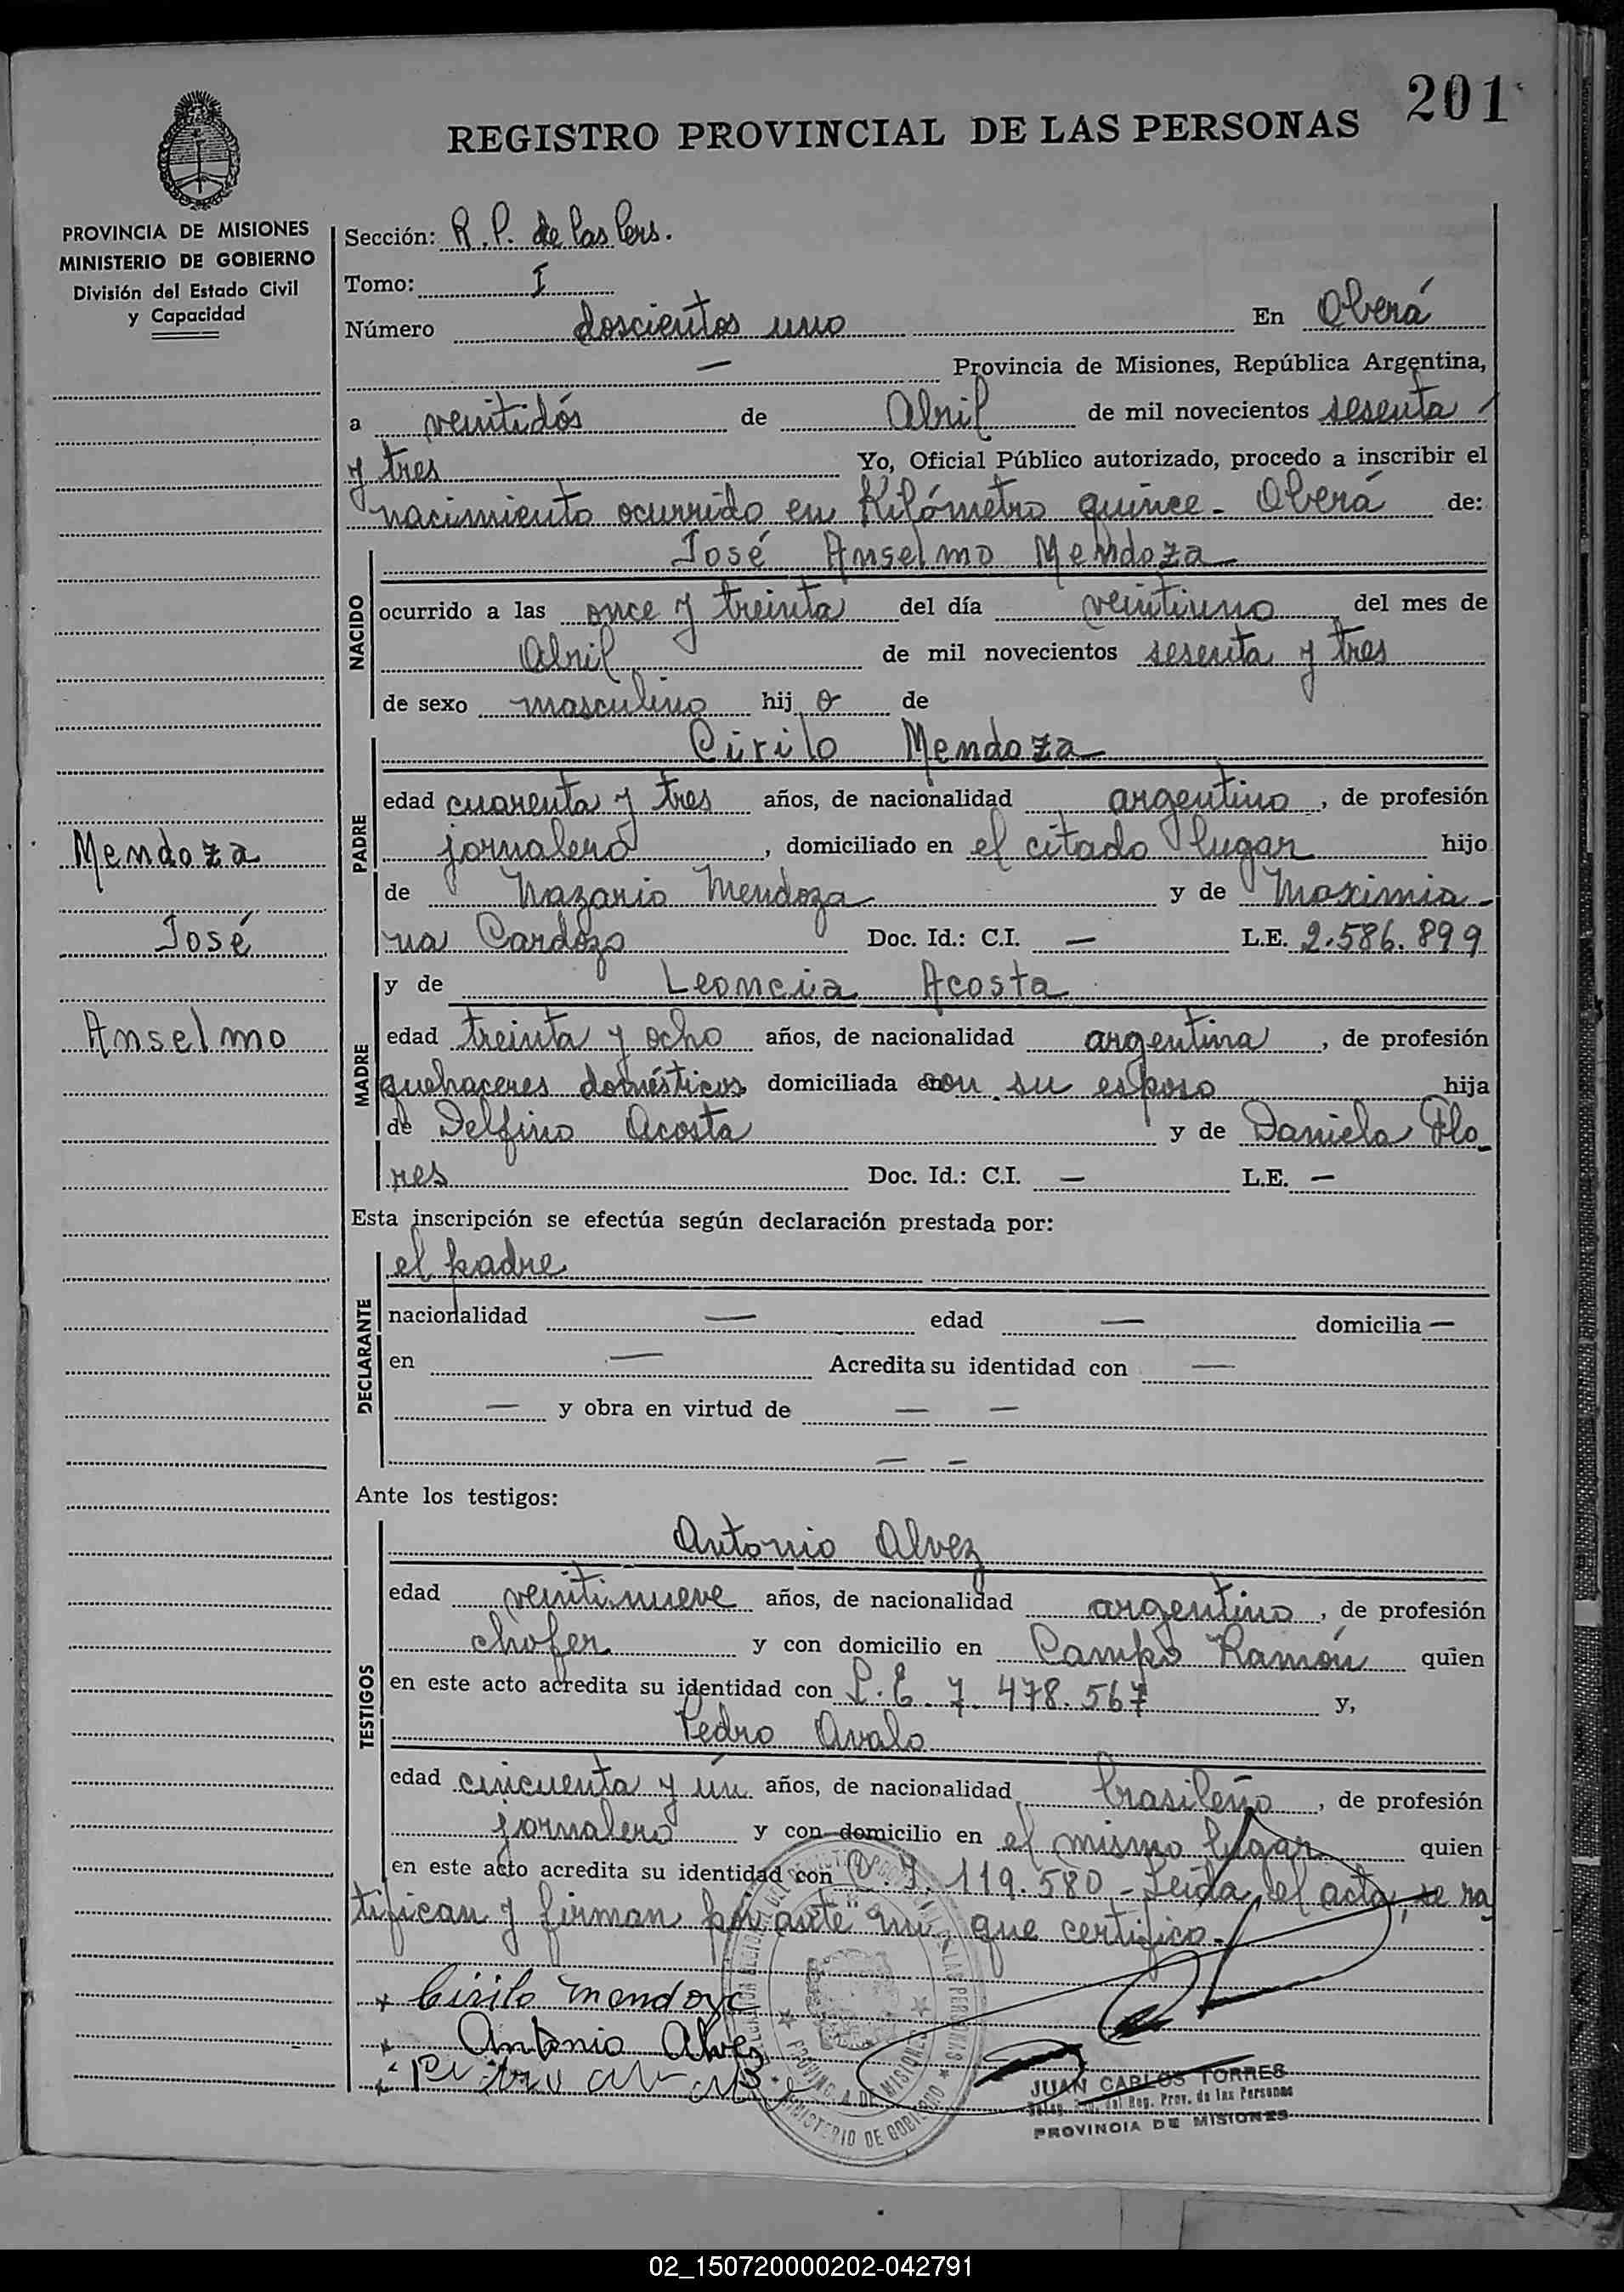 201
REGISTRO PROVINCIAL DE LAS PERSONAS
PROVINCIA DE MISIONES
MINISTERIO DE GOBIERNO
División del Estado Civil
y Capacidad
Sección: R. P. de las Pers.
Tomo: I
Número doscientos uno En Oberá
— Provincia de Misiones, República Argentina,
a veintidós de Abril de mil novecientos sesenta
y tres Yo, Oficial Público autorizado, procedo a inscribir el
nacimiento ocurrido en Kilómetro quince - Oberá de:
NACIDO
José Anselmo Mendoza
ocurrido a las once y treinta del día veintiuno del mes de
Abril de mil novecientos sesenta y tres
de sexo masculino hij o de
PADRE
Cirilo Mendoza
edad cuarenta y tres años, de nacionalidad argentino, de profesión
jornalero, domiciliado en el citado lugar hijo
de Nazario Mendoza y de Maximia-
na Cardozo Doc. Id.: C.I. — L.E. 2.586.899
MADRE
y de Leoncia Acosta
edad treinta y ocho años, de nacionalidad argentina, de profesión
quehaceres domésticos domiciliada en con su esposo hija
de Delfino Acosta y de Daniela Flo-
res Doc. Id.: C.I. — L.E. —
Mendoza
José
Anselmo
Esta inscripción se efectúa según declaración prestada por:
DECLARANTE
el padre
nacionalidad — edad — domicilia —
en — Acredita su identidad con —
— y obra en virtud de — —
— —
Ante los testigos:
TESTIGOS
Antonio Alvez
edad veintinueve años, de nacionalidad argentino, de profesión
chofer y con domicilio en Campo Ramón quien
en este acto acredita su identidad con L.E. 7.478.567 y,
Pedro Avalo
edad cincuenta y ún años, de nacionalidad brasileño, de profesión
jornalero y con domicilio en el mismo lugar quien
en este acto acredita su identidad con C.I. 119.580 - Leída el acta, se ra
tifican y firman por ante mi, que certifico.-
Cirilo Mendoza
Antonio Alvez
JUAN CARLOS TORRES
del Reg. Prov. de las Personas
PROVINCIA DE MISIONES
PROVINCIA DE MISIONES
MINISTERIO DE GOBIERNO
02_150720000202-042791